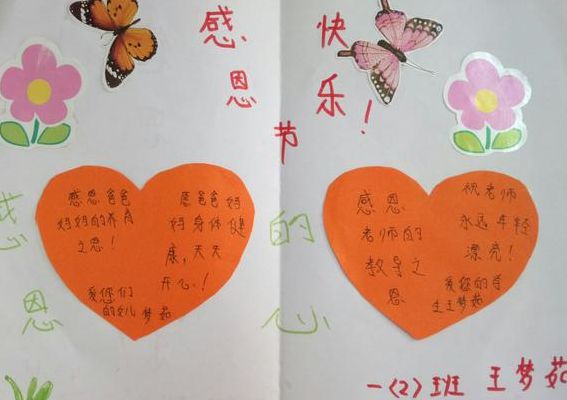 感恩节快乐!
感恩的心
感恩爸爸
妈妈的养育
之恩!
愿爸爸妈
妈身体健
康,天天
开心!
爱您们
的女儿 梦茹
感恩
老师的
教导之
恩
祝老师
永远年轻
漂亮!
爱您的学
生王梦茹
一(2)班 王梦茹